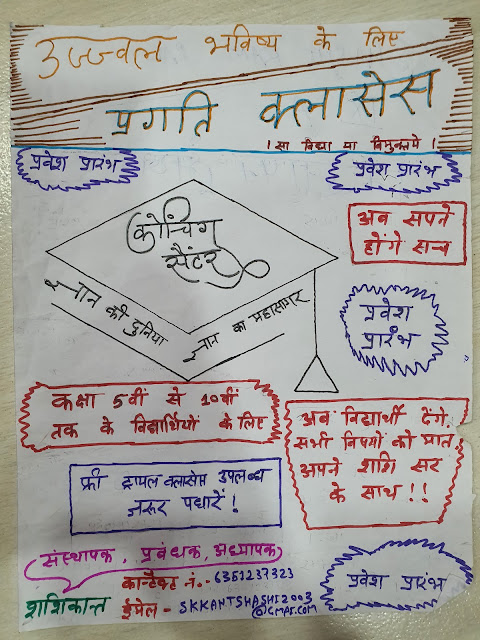 उज्ज्वल भविष्य के लिए
प्रगति क्लासेस
। सा विद्या या विमुक्तये ।
प्रवेश प्रारंभ
प्रवेश प्रारंभ
कोचिंग
सैंटर
ज्ञान की दुनिया
ज्ञान का महासागर
अब सपने
होंगे सच
प्रवेश
प्रारंभ
कक्षा 5वीं से 10वीं
तक के विद्यार्थियों के लिए
अब विद्यार्थी देंगे
सभी विषयों को मात
अपने शशि सर
के साथ !!
फ्री ट्रायल क्लासेस उपलब्ध
जरूर पधारें !
संस्थापक, प्रबंधक, अध्यापक
शशिकान्त
कान्टैक्ट नं.- 6351237323
ईमेल - SKKANTSHASHI2003
@GMAIL.COM
प्रवेश प्रारंभ